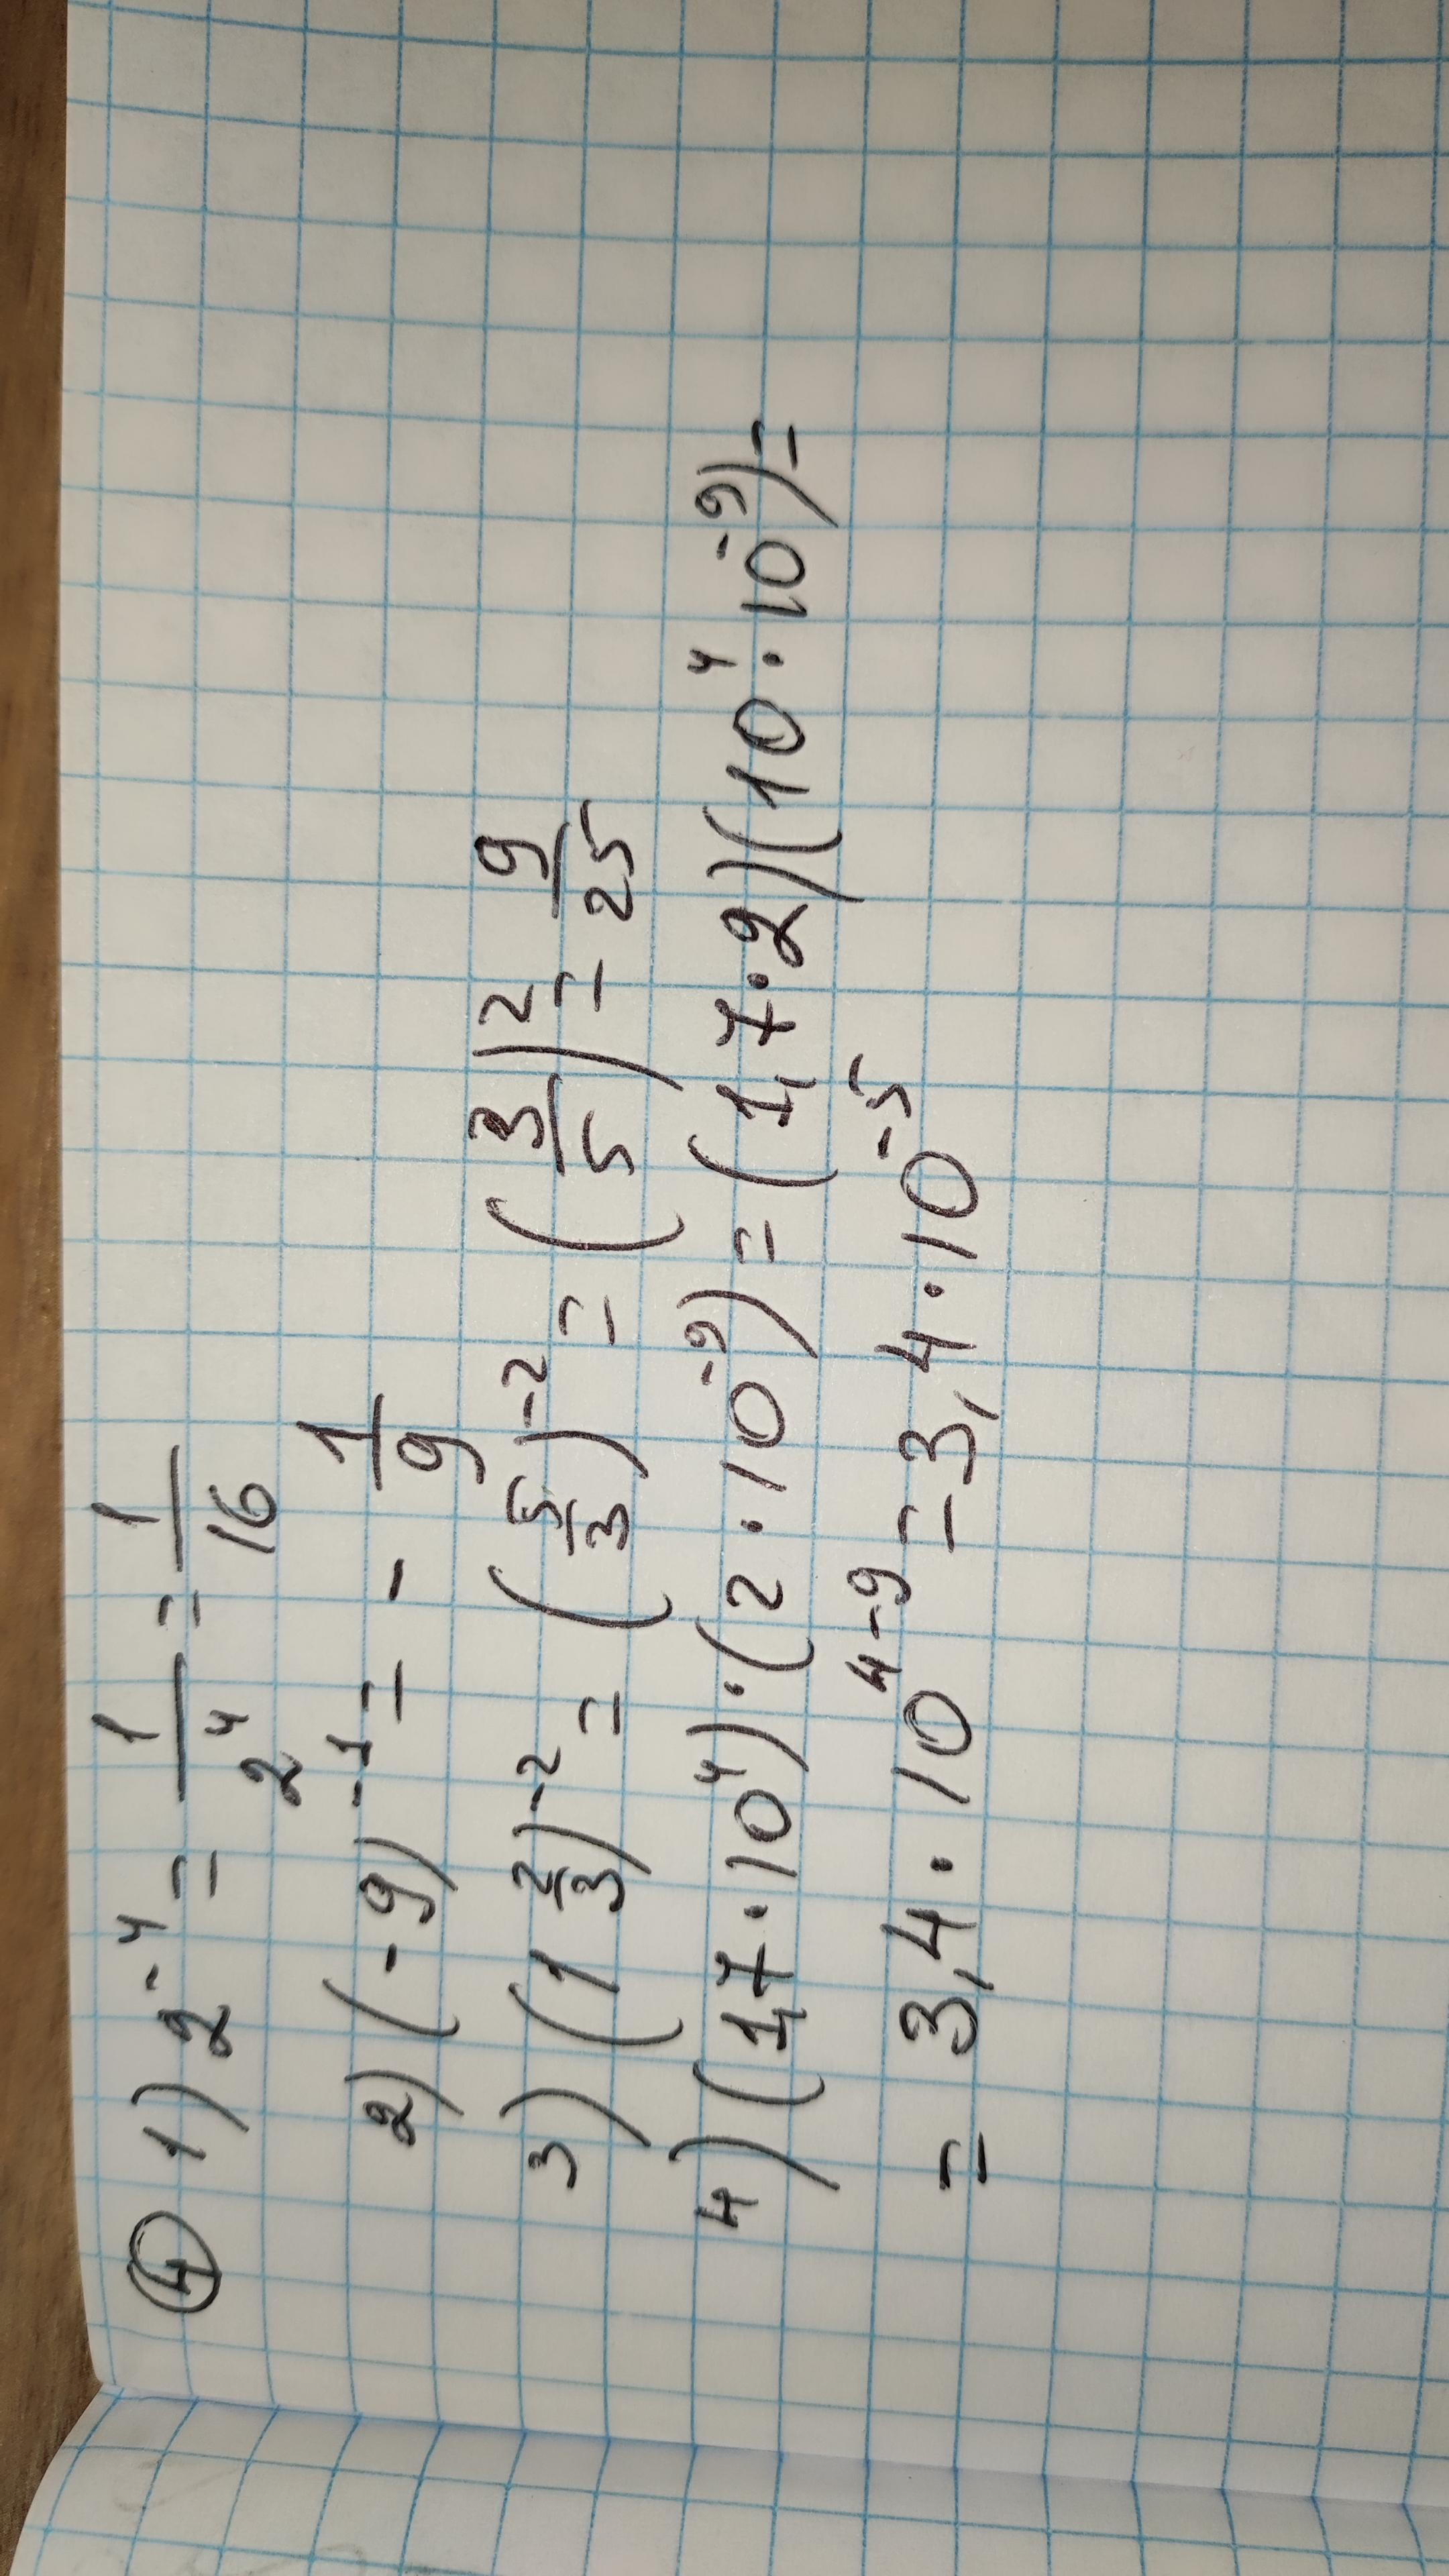 ④ 1) 2⁻⁴ = 1/2⁴ = 1/16
2) (-9)⁻¹ = - 1/9
3) (1 2/3)⁻² = (5/3)⁻² = (3/5)² = 9/25
4) (1,7·10⁴)·(2·10⁻⁹) = (1,7·2)(10⁴·10⁻⁹) =
= 3,4·10⁴⁻⁹ = 3,4·10⁻⁵